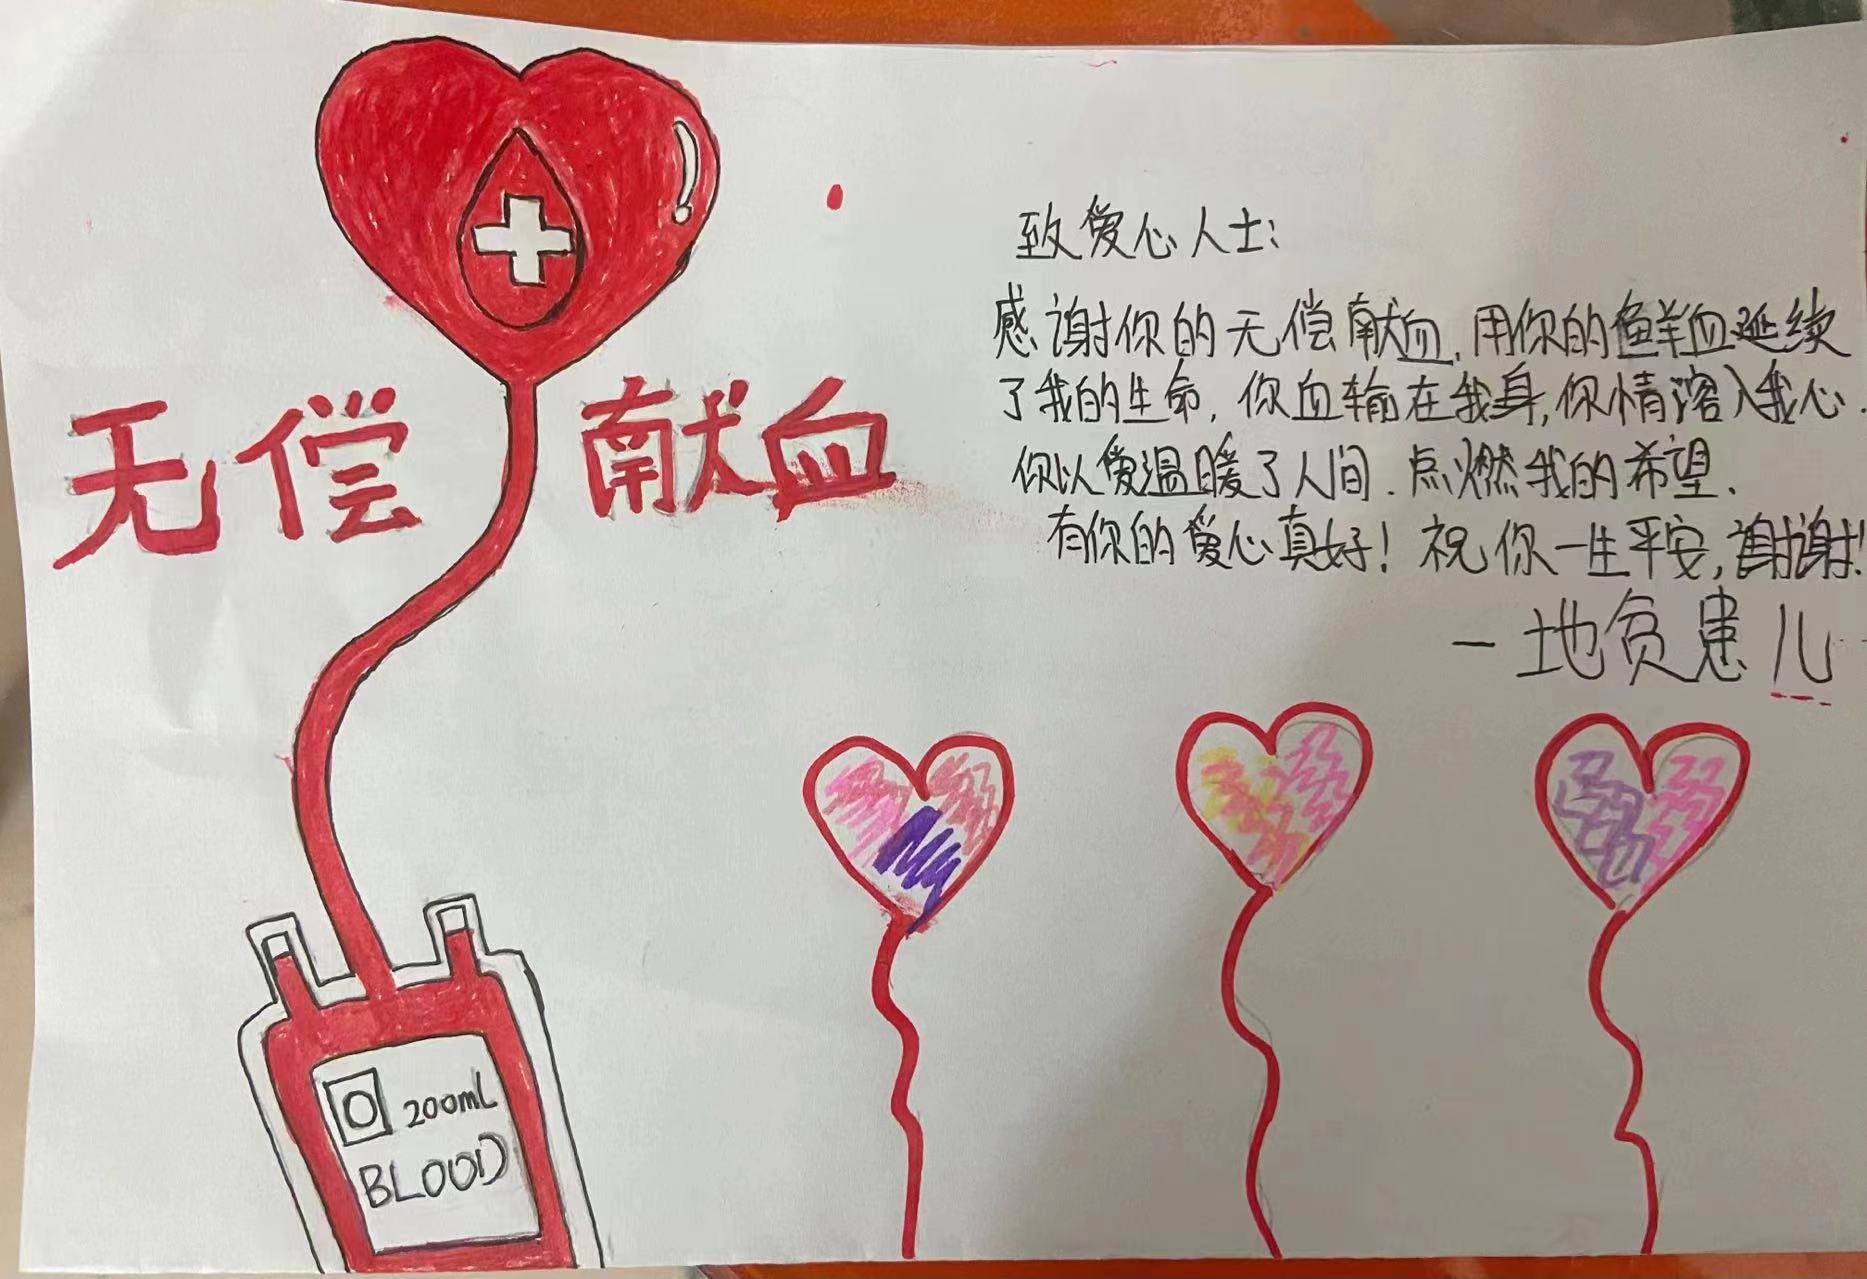 无偿 献血
致爱心人士:
感谢你的无偿献血,用你的鲜血延续
了我的生命,你血输在我身,你情溶入我心.
你以爱温暖了人间.点燃我的希望.
有你的爱心真好!祝你一生平安,谢谢!
一地贫患儿
O 200mL
BLOOD